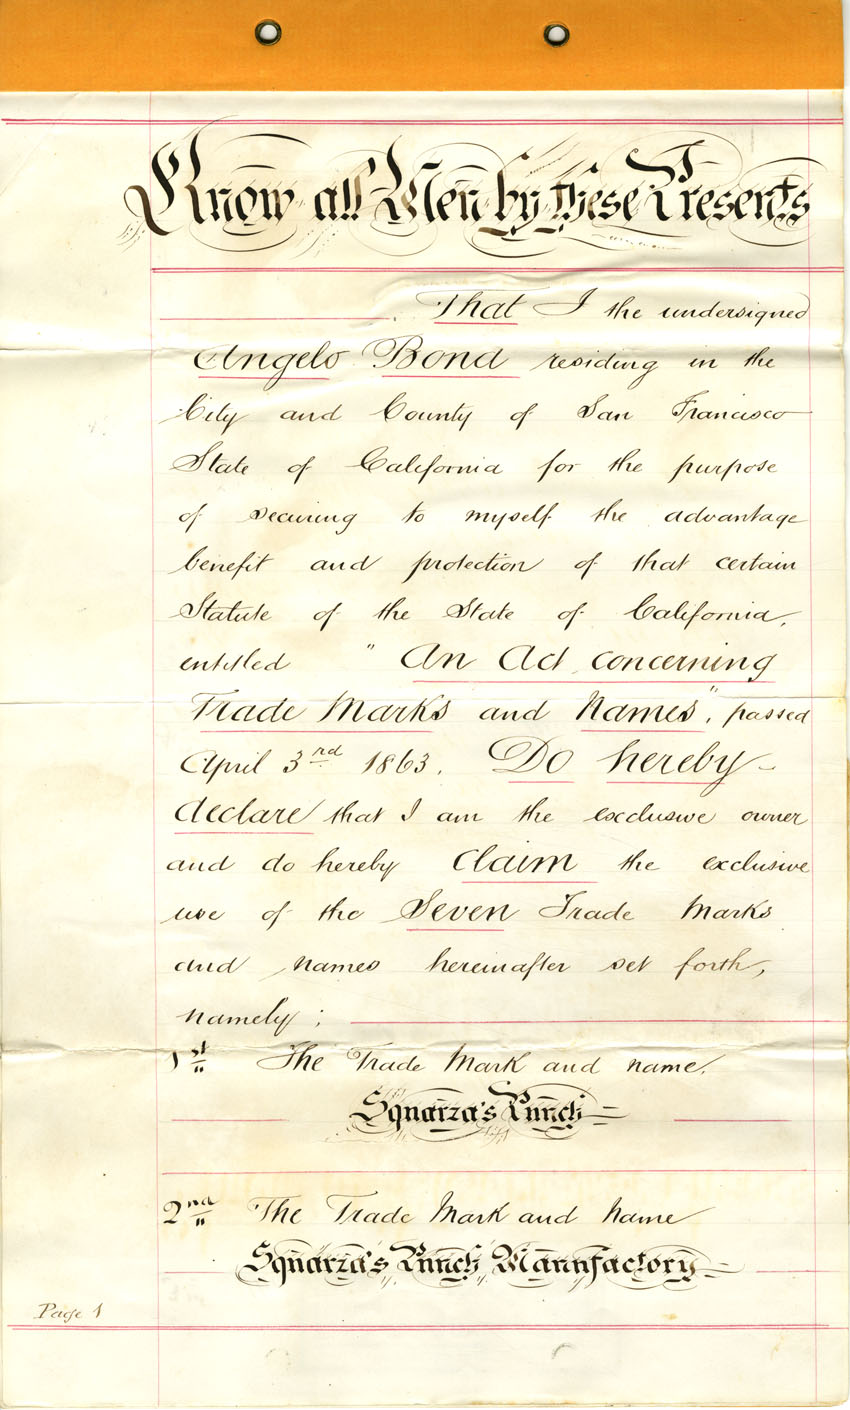 Know all Men by these Presents
That I the undersigned
Angelo Bond residing in the
City and County of San Francisco
State of California for the purpose
of securing to myself the advantage
benefit and protection of that certain
Statute of the State of California,
entitled " An Act concerning
Trade Marks and Names", passed
April 3rd 1863. Do hereby
declare that I am the exclusive owner
and do hereby claim the exclusive
use of the Seven Trade Marks
and names hereinafter set forth,
namely;
1st The Trade Mark and name.
Squarza's Punch
2nd The Trade Mark and Name
Squarza's Punch Manufactory
Page 1